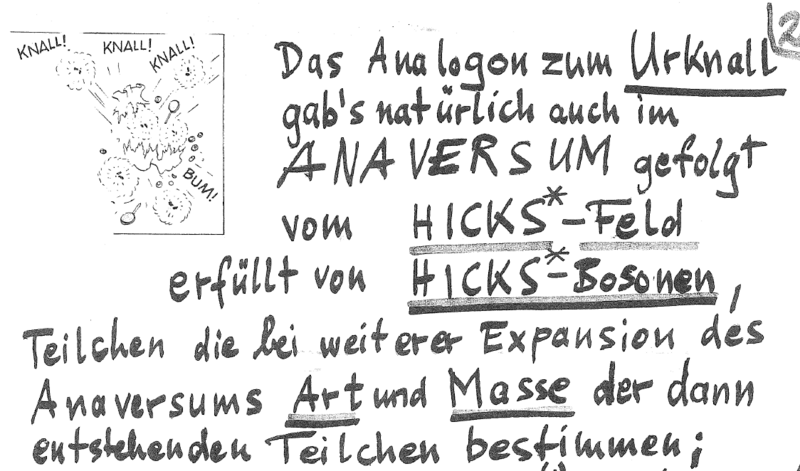 2
KNALL! KNALL! KNALL!
BUM!
Das Analogon zum Urknall
gab's natürlich auch im
ANAVERSUM gefolgt
vom HICKS*-Feld
erfüllt von HICKS*-Bosonen,
Teilchen die bei weiterer Expansion des
Anaversums Art und Masse der dann
entstehenden Teilchen bestimmen;